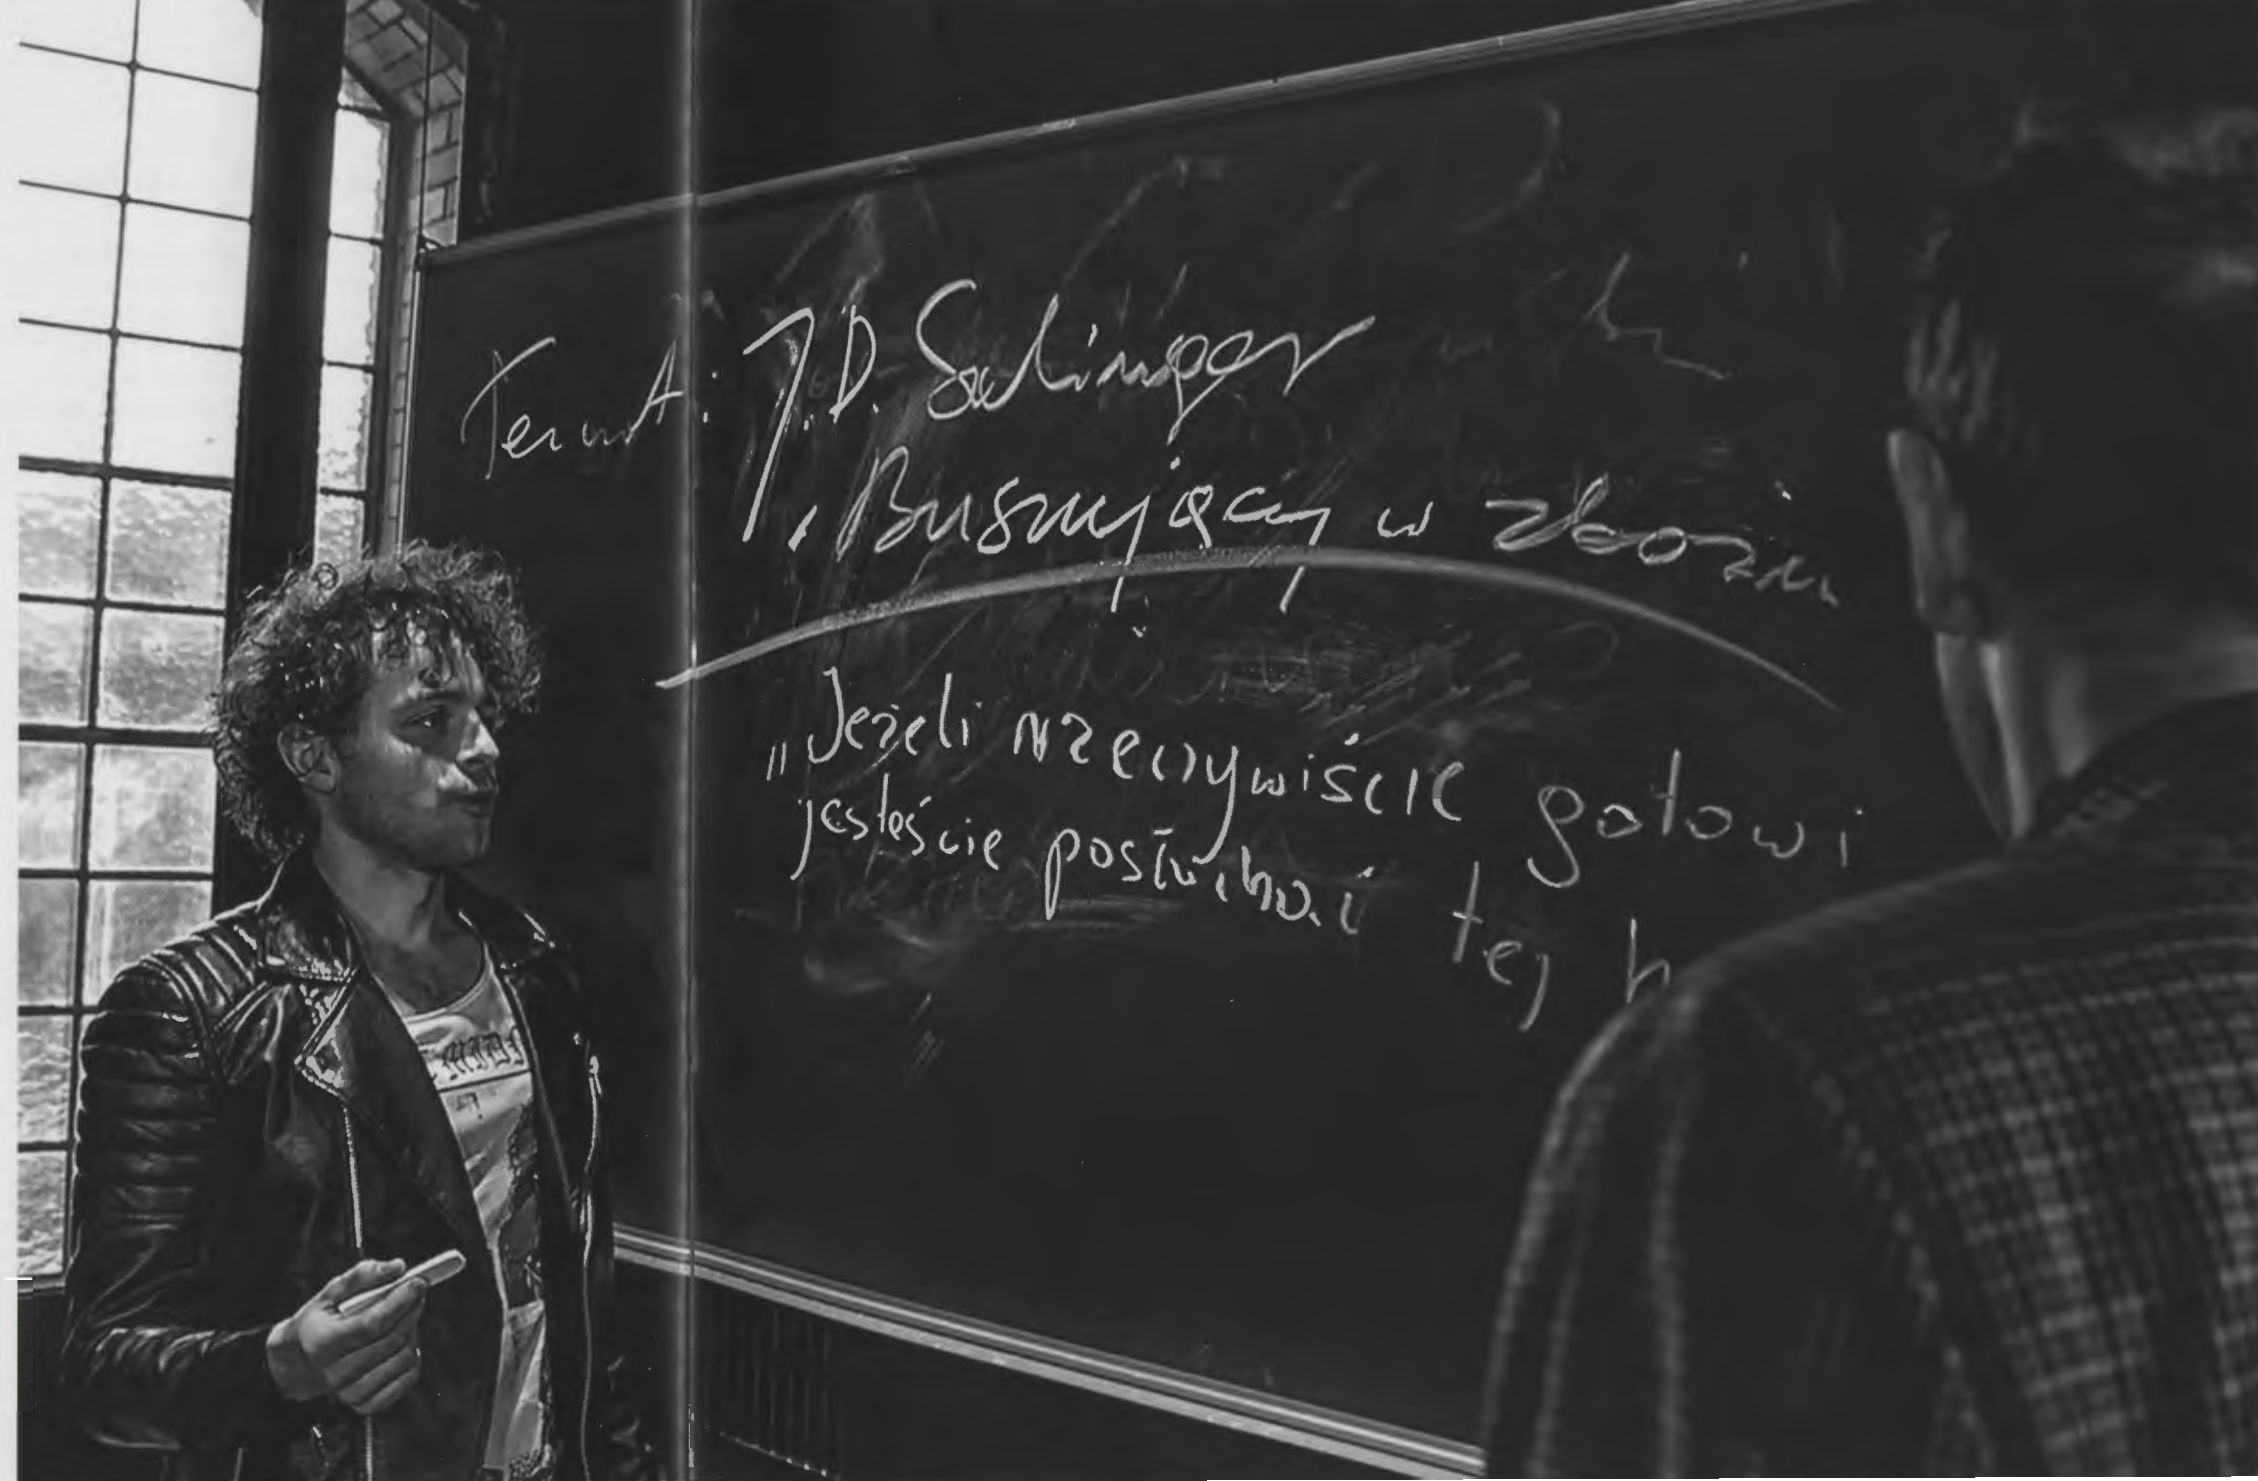 Temat: J.D. Salinger
„Buszujący w zbożu
„Jeżeli rzeczywiście gotowi
jesteście posłuchać tej h